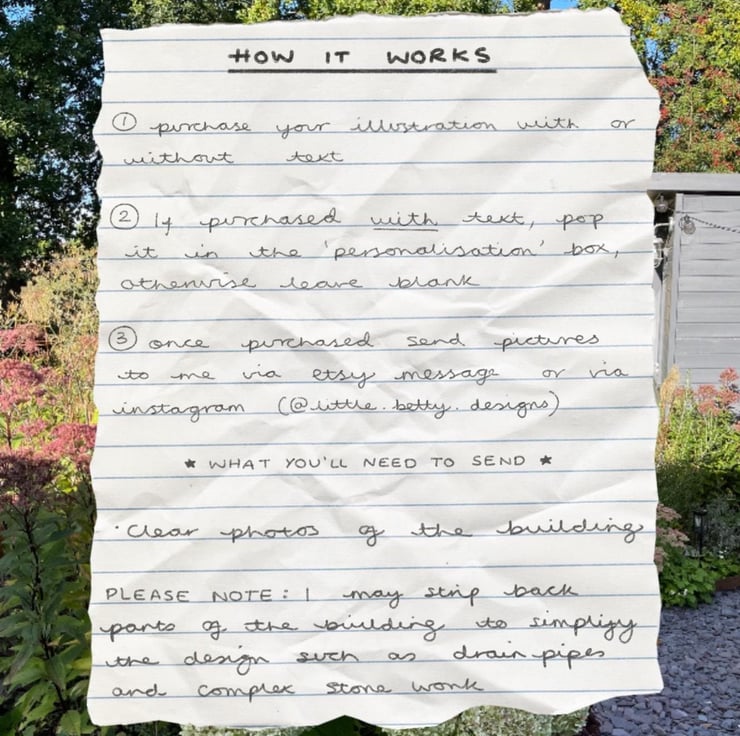 HOW IT WORKS
① purchase your illustration with or
without text
② If purchased with text, pop
it in the 'personalisation' box,
otherwise leave blank
③ once purchased send pictures
to me via etsy message or via
instagram (@little.betty.designs)
* WHAT YOU'LL NEED TO SEND *
· Clear photos of the building
PLEASE NOTE: I may strip back
parts of the building to simplify
the design such as drain pipes
and complex stone work